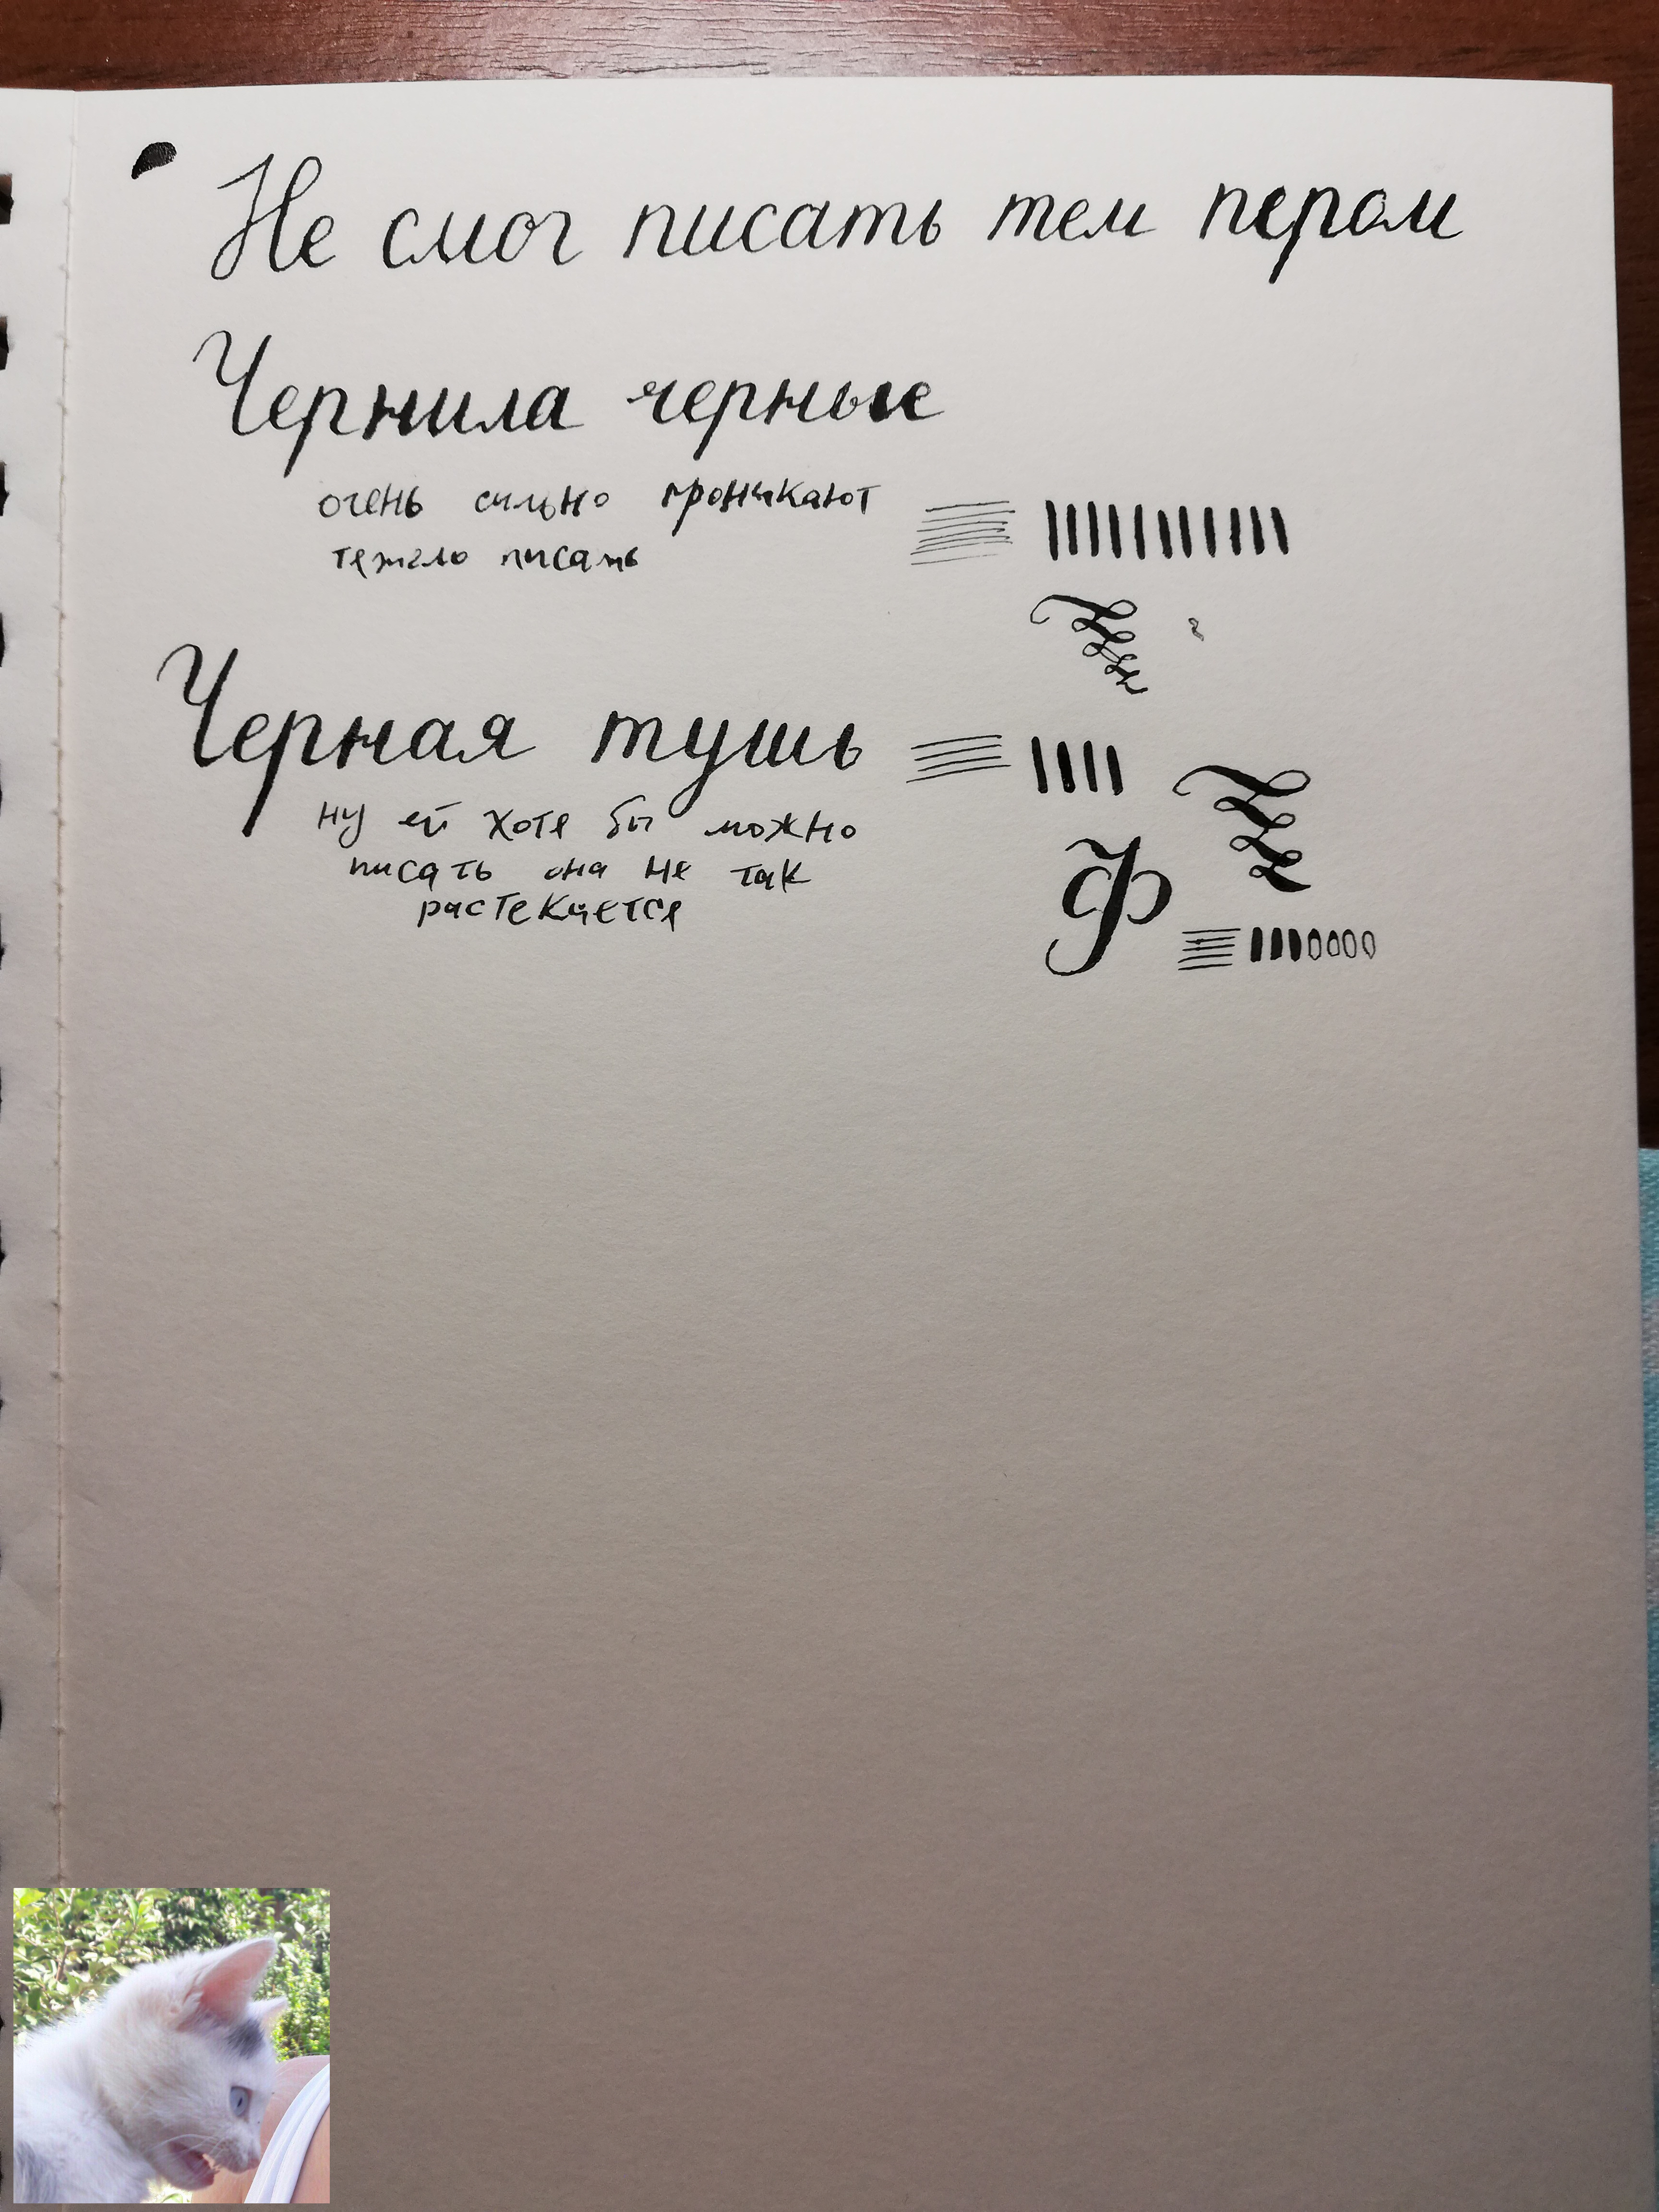 Не смог писать тем пером
Чернила черные
очень сильно проникают
тяжело писать
Черная тушь
ну ей хотя бы можно
писать она не так
растекается
Ф